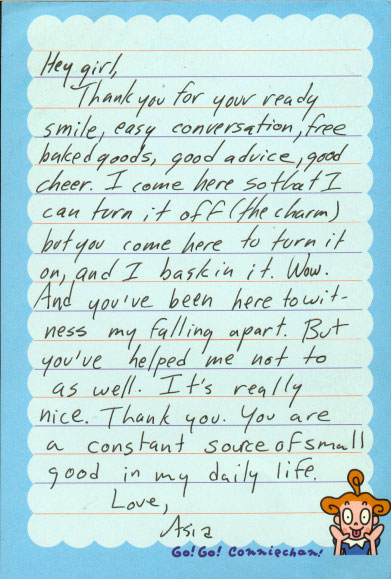 Hey girl,
Thank you for your ready
smile, easy conversation, free
baked goods, good advice, good
cheer. I come here so that I
can turn it off (the charm)
but you come here to turn it
on, and I bask in it. Wow.
And you've been here to wit-
ness my falling apart. But
you've helped me not to
as well. It's really
nice. Thank you. You are
a constant source of small
good in my daily life.
Love,
Asia
Go! Go! Conniechan!